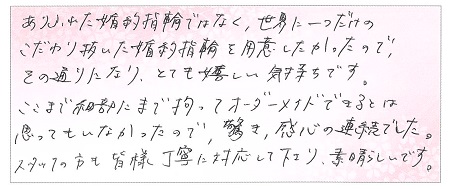 ありふれた婚約指輪ではなく、世界に一つだけの
こだわり抜いた婚約指輪を用意したかったので、
その通りになり、とても嬉しい気持ちです。
ここまで細部にまで拘ってオーダーメイドできるとは
思ってもいなかったので、驚き、感心の連続でした。
スタッフの方も皆様丁寧に対応して下さり、素晴らしいです。